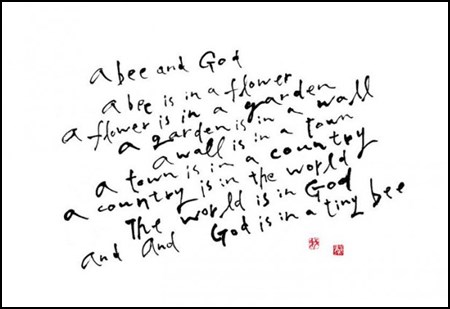 a bee and God
a bee is in a flower
a flower is in a garden
a garden is in a wall
a wall is in a town
a town is in a country
a country is in the world
The world is in God
and and God is in a tiny bee